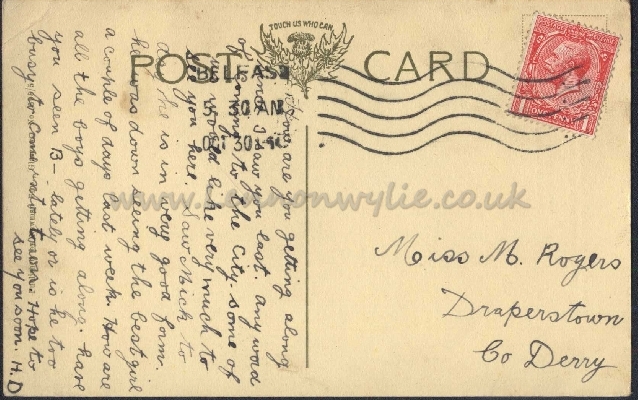 TOUCH US WHO CAN
POST CARD
BELFAST
30 AM
30
ONE PENNY
www.Lennonwylie.co.uk
How are you getting along
I saw you last. any word
of coming to the City. some of
would like very much to
see you here. Saw Mick to
he is in very good form.
he was down seeing the best girl
a couple of days last week. How are
all the boys getting along. have
you seen B— lately or is he too
busy to come into town. Hope to
see you soon. H.D
Miss M. Rogers
Draperstown
Co Derry